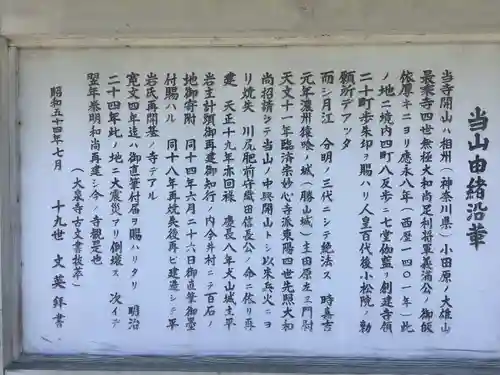 当山由緒沿革
当寺開山ハ相州（神奈川県）小田原ノ大雄山
最乗寺四世無極大和尚足利将軍義満公ノ御皈
依厚キニヨリ應永八年（西歴一四〇一年）此
ノ地ニ境内四町八反歩ニ七堂伽藍ヲ創建寺領
二十町歩朱印ヲ賜ハリ人皇百代後小松院ノ勅
願所デアッタ
而シ月江 分明ノ三代ニシテ絶法ス 時嘉吉
元年濃州猿喰ノ城（勝山城）主田原左ヱ門尉
天文十一年臨済宗妙心寺派東陽四世先照大和
尚招請シテ当山ノ中興開山トシ以来兵火ニヨ
リ焼失 川尻肥前守織田信長公ノ命ニ依リ再
建 天正十九年亦回禄 慶長八年犬山城主平
岩主計頭御再建御知行ノ内今井村ニテ百石ノ
地御寄附 同十四年六月二十六日御直筆御墨
付賜ハル 同十八年再焼矣後再ビ建造シテ平
岩氏再開基ノ寺デアル
寛文四年迄ハ御直筆付届ヲ賜ハリタリ 明治
二十四年此ノ地ニ大震災アリ倒壊ス 次イデ
翌年泰明和尚再建シ今ノ寺観是也
（大泉寺古文書抜萃）
昭和五十四年七月
十九世 文英 拝書